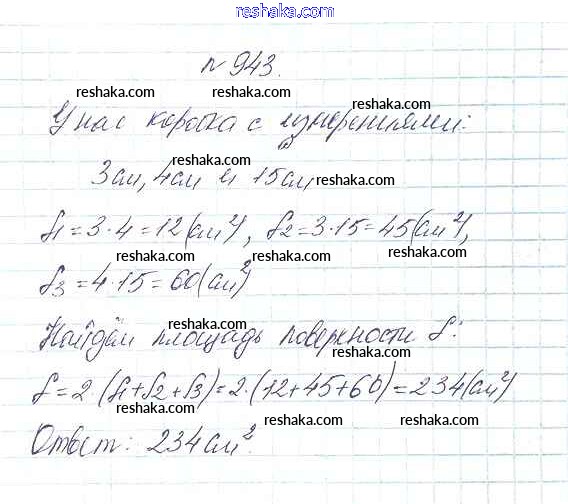 reshaka.com
reshaka.com
№ 943.
reshaka.com reshaka.com
У нас коробка с измерениями:
reshaka.com
reshaka.com
3 см, 4 см и 15 см
reshaka.com
S1 = 3 · 4 = 12 (см²), S2 = 3 · 15 = 45 (см²),
reshaka.com reshaka.com
S3 = 4 · 15 = 60 (см²)
reshaka.com
Найдём площадь поверхности S:
reshaka.com reshaka.com
S = 2 · (S1 + S2 + S3) = 2 · (12 + 45 + 60) = 234 (см²)
reshaka.com
reshaka.com reshaka.com
Ответ: 234 см².
reshaka.com